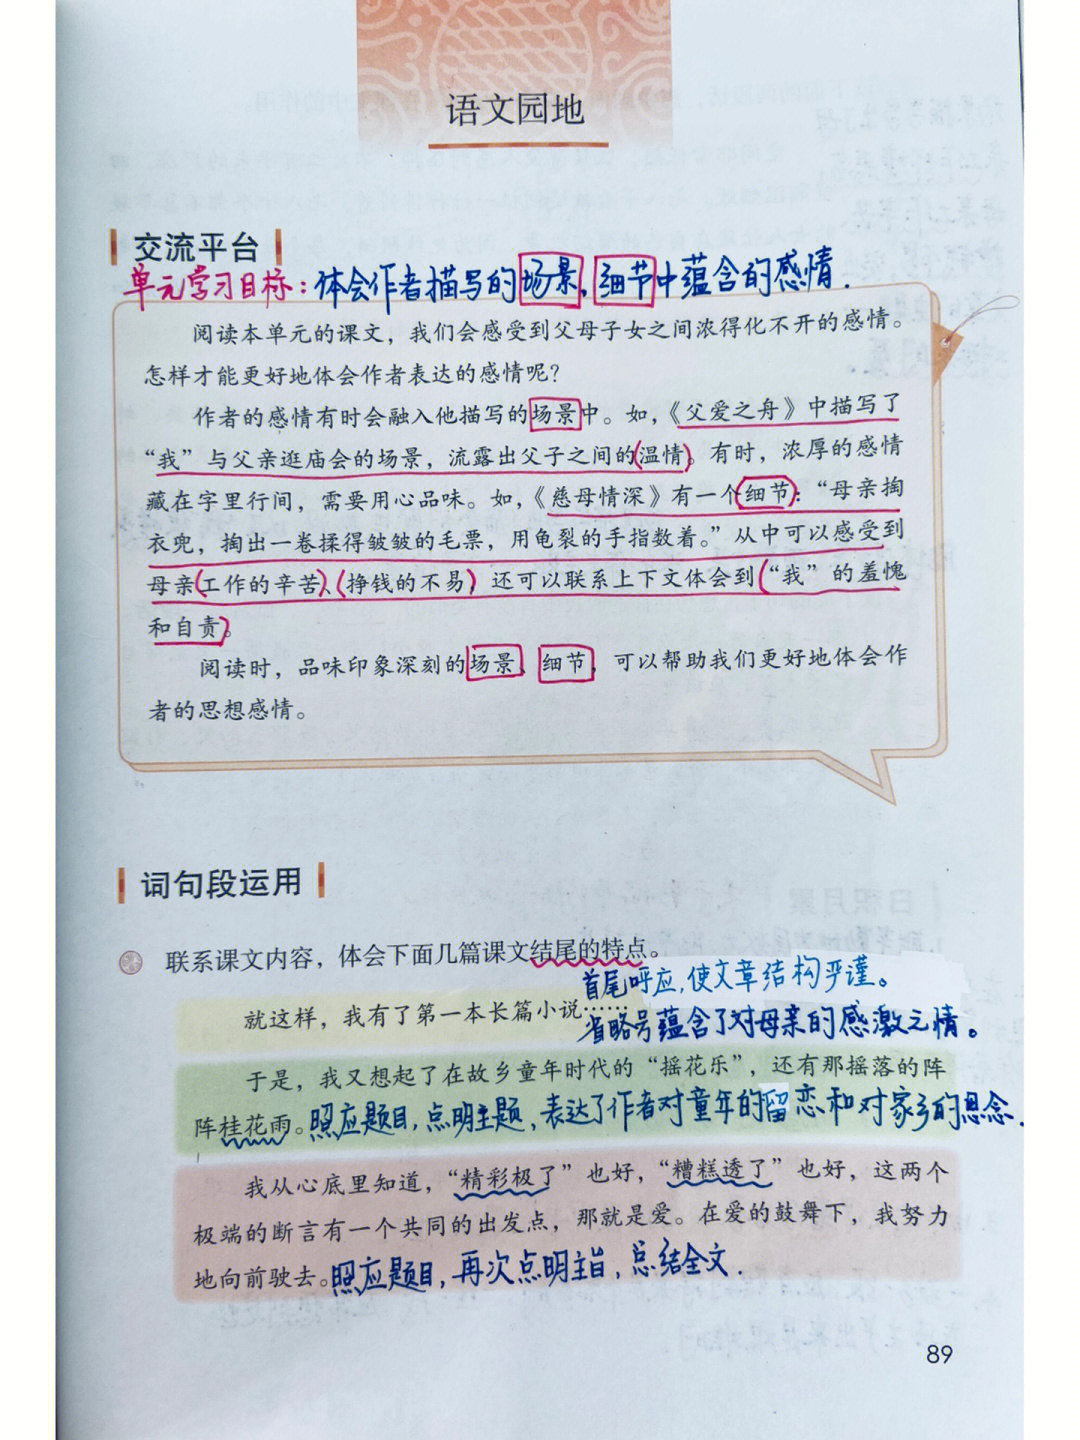 语文园地
交流平台
单元学习目标：体会作者描写的场景，细节中蕴含的感情.
阅读本单元的课文，我们会感受到父母子女之间浓得化不开的感情。
怎样才能更好地体会作者表达的感情呢？
作者的感情有时会融入他描写的场景中。如，《父爱之舟》中描写了
“我”与父亲逛庙会的场景，流露出父子之间的温情。有时，浓厚的感情
藏在字里行间，需要用心品味。如，《慈母情深》有一个细节：“母亲掏
衣兜，掏出一卷揉得皱皱的毛票，用龟裂的手指数着。”从中可以感受到
母亲工作的辛苦、挣钱的不易，还可以联系上下文体会到“我”的羞愧
和自责。
阅读时，品味印象深刻的场景、细节，可以帮助我们更好地体会作
者的思想感情。
词句段运用
联系课文内容，体会下面几篇课文结尾的特点。
首尾呼应，使文章结构严谨。
就这样，我有了第一本长篇小说……
省略号蕴含了对母亲的感激之情。
于是，我又想起了在故乡童年时代的“摇花乐”，还有那摇落的阵
阵桂花雨。照应题目，点明主题，表达了作者对童年的留恋和对家乡的思念.
我从心底里知道，“精彩极了”也好，“糟糕透了”也好，这两个
极端的断言有一个共同的出发点，那就是爱。在爱的鼓舞下，我努力
地向前驶去。照应题目，再次点明主旨，总结全文.
89